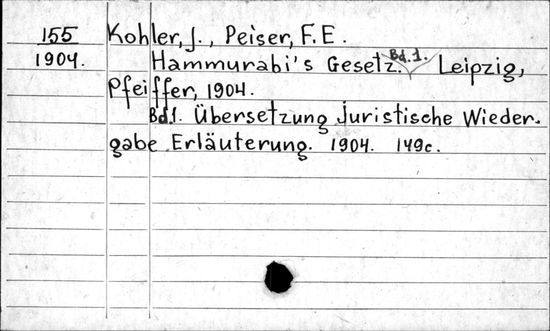 155 Kohler, J., Peiser, F.E.
1904. Hammurabi's Gesetz. Bd.1. Leipzig,
Pfeiffer, 1904.
Bd.1. Übersetzung Juristische Wieder-
gabe Erläuterung. 1904. 149c.